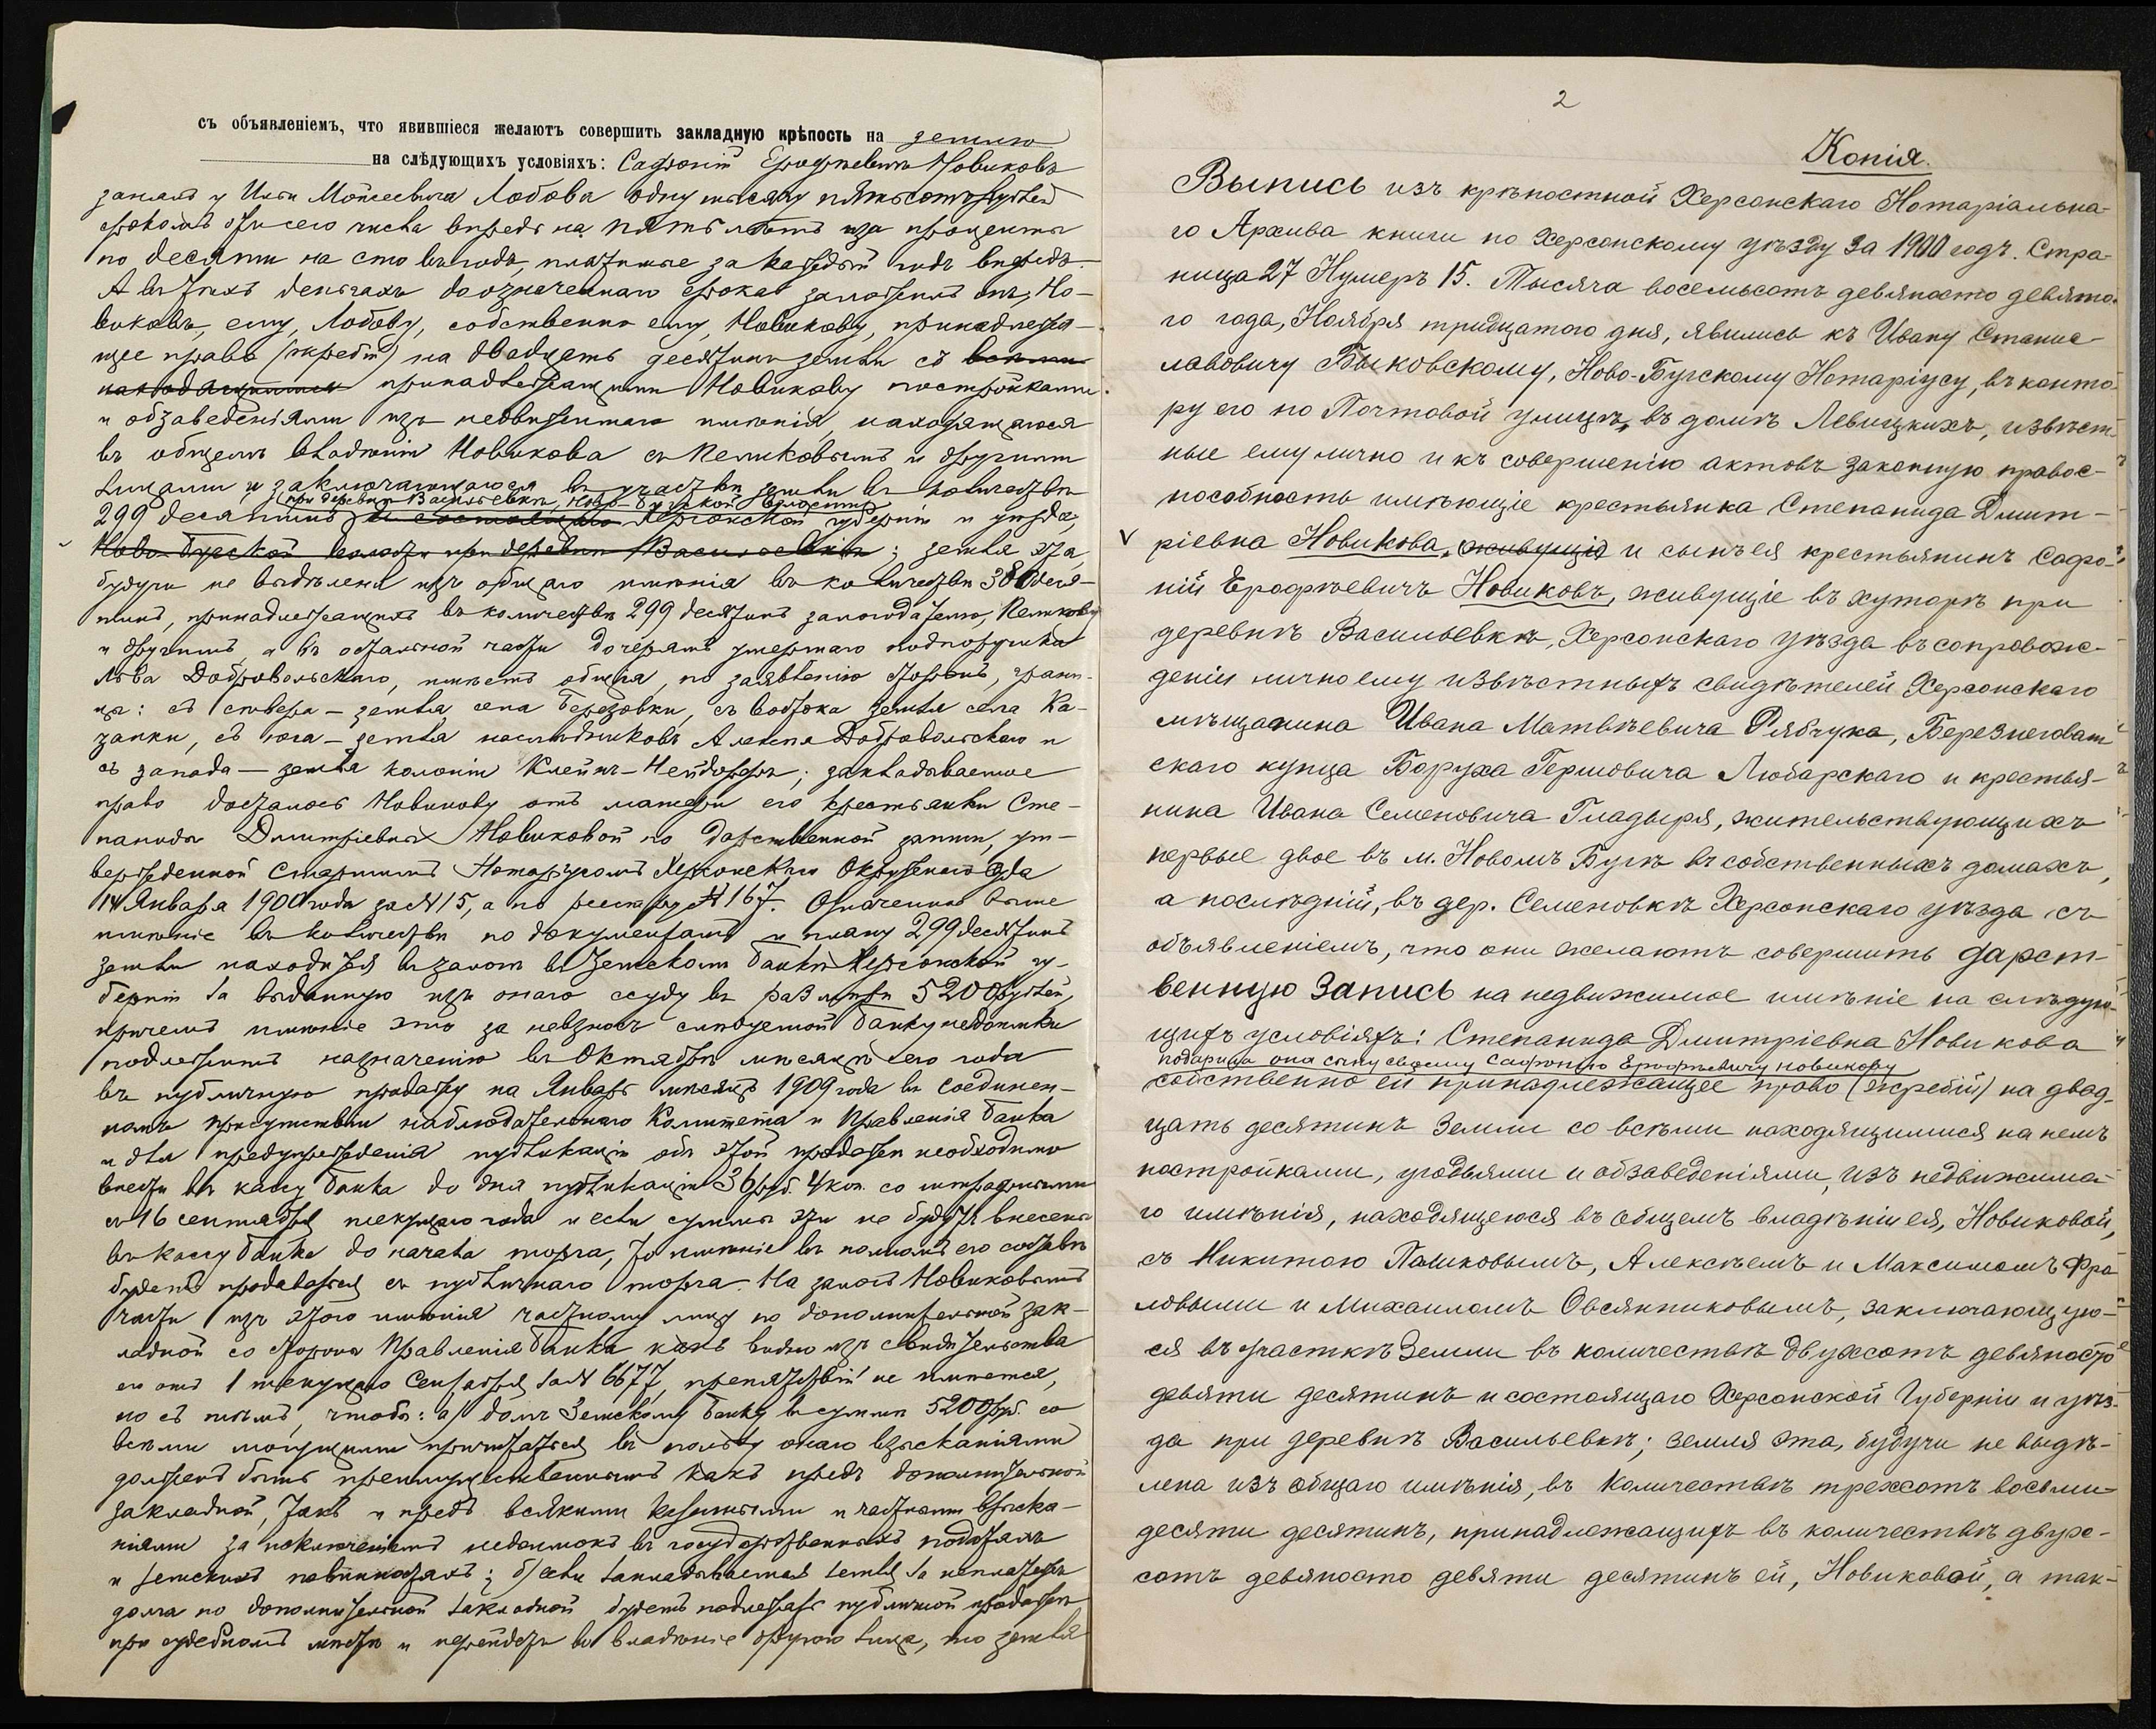 съ объявленіемъ, что явившіеся желаютъ совершить закладную крѣпость на землю
на слѣдующихъ условіяхъ: Сафоній Ерофѣевичъ Новиковъ
занялъ у Ильи Моисеевича Лобова одну тысячу пятьсотъ рублей
срокомъ отъ сего числа впредь на пять лѣтъ изъ процента
по десяти на сто въ годъ, платимые за каждый годъ впередъ.
А въ тѣхъ деньгахъ до означеннаго срока заложилъ онъ, Но-
виковъ, ему, Лобову, собственно ему, Новикову, принадлежа-
щее право (жребій) на двадцать десятинъ земли съ всѣми
находящимися принадлежащими Новикову постройками
и обзаведеніями изъ недвижимаго имѣнія, находящагося
въ общемъ владѣніи Новикова съ Пешковымъ и другими
лицами и заключающагося въ участкѣ земли въ количествѣ
при деревнѣ Васильевкѣ, Ново-Бугской волости
299 десятинъ и состоящаго Херсонской губерніи и уѣзда,
Ново-Бугской волости при деревнѣ Васильевкѣ; земля эта,
будучи не выдѣлена изъ общаго имѣнія въ количествѣ 380 деся-
тинъ, принадлежащихъ въ количествѣ 299 десятинъ залогодателю, Пешкову
и другимъ, а въ остальной части дочерямъ умершаго подпоручика
Льва Добровольскаго, имѣетъ общія, по заявленію сторонъ, грани-
цы: съ сѣвера – земля села Березовки, съ востока земля села Ка-
занки, съ юга – земля наслѣдниковъ Алексѣя Добровольскаго и
съ запада – земля колоніи Клейнъ-Нейдорфъ; закладываемое
право досталось Новикову отъ матери его крестьянки Сте-
паниды Дмитріевны Новиковой по дарственной записи, ут-
вержденной Старшимъ Нотаріусомъ Херсонскаго Окружнаго Суда
14 Января 1900 года за № 15, а по реестру № 167. Означенное выше
имѣніе въ количествѣ по документамъ и плану 299 десятинъ
земли находится въ залогѣ въ Земскомъ банкѣ Херсонской гу-
берніи за выданную изъ онаго ссуду въ размѣрѣ 5200 рублей,
причемъ имѣніе это за невзносъ слѣдуемой банку недоимки
подлежитъ назначенію въ Октябрѣ мѣсяцѣ сего года
въ публичную продажу на Январь мѣсяцъ 1909 года въ соединен-
номъ присутствіи наблюдательнаго Комитета и Правленія банка
и для предупрежденія публикаціи объ этой продажѣ необходимо
внести въ кассу банка до дня публикаціи 36 руб. 4 коп. со штрафными
съ 16 сентября текущаго года и если суммы эти не будутъ внесены
въ кассу банка до начала торга, то имѣніе въ полномъ его составѣ
будетъ продаваться съ публичнаго торга. На залогъ Новиковымъ
части изъ этого имѣнія частному лицу по дополнительной зак-
ладной со стороны Правленія банка какъ видно изъ свидѣтельства
его отъ 1 текущаго Сентября за № 6677, препятствій не имѣется,
но съ тѣмъ, чтобы: а) долгъ Земскому банку въ суммѣ 5200 руб. со
всѣми могущими причитаться въ пользу онаго взысканіями
долженъ быть преимущественнымъ какъ предъ дополнительной
закладной, такъ и предъ всякими казенными и частными взыска-
ніями за исключеніемъ недоимокъ въ государственныхъ податяхъ
и земскихъ повинностяхъ; б) если закладываемая земля за неплатежъ
долга по дополнительной закладной будетъ подлежать публичной продажѣ
при судебномъ мѣстѣ и перейдетъ во владѣніе другого лица, то земля
2
Копія.
Выпись изъ крѣпостной Херсонскаго Нотаріальна-
го Архива книги по Херсонскому уѣзду за 1900 годъ. Стра-
ница 27 Нумеръ 15. Тысяча восемьсотъ девяносто девято-
го года, Ноября тридцатаго дня, явились къ Ивану Станис-
лавовичу Быковскому, Ново-Бугскому Нотаріусу, въ конто-
ру его по Почтовой улицѣ, въ домѣ Левицкихъ, извѣст-
ные ему лично и къ совершенію актовъ законную правос-
пособность имѣющіе крестьянка Степанида Дмит-
ріевна Новикова, живущія и сынъ ея крестьянинъ Сафо-
ній Ерофѣевичъ Новиковъ, живущіе въ хуторѣ при
деревнѣ Васильевкѣ, Херсонскаго уѣзда въ сопровож-
деніи лично ему извѣстныхъ свидѣтелей Херсонскаго
мѣщанина Ивана Матвѣевича Рябчука, Березнеговат-
скаго купца Боруха Гершовича Любарскаго и крестья-
нина Ивана Семеновича Гладыря, жительствующихъ
первые двое въ м. Новомъ Бугѣ въ собственныхъ домахъ,
а послѣдній, въ дер. Семеновкѣ Херсонскаго уѣзда съ
объявленіемъ, что они желаютъ совершить дарст-
венную Запись на недвижимое имѣніе на слѣдую-
щихъ условіяхъ: Степанида Дмитріевна Новикова
подарила она сыну своему Сафонію Ерофѣевичу Новикову
собственно ей принадлежащее право (жребій) на двад-
цать десятинъ земли со всѣми находящимися на немъ
постройками, угодьями и обзаведеніями, изъ недвижима-
го имѣнія, находящегося въ общемъ владѣніи ея, Новиковой,
съ Никитою Пашковымъ, Алексѣемъ и Максимомъ Фро-
ловыми и Михаиломъ Овсянниковымъ, заключающую-
ся въ участкѣ Земли въ количествѣ двухсотъ девяносто
девяти десятинъ и состоящаго Херсонской Губерніи и уѣз-
да при деревнѣ Васильевкѣ; земля эта, будучи не выдѣ-
лена изъ общаго имѣнія, въ количествѣ трехсотъ восьми-
десяти десятинъ, принадлежащихъ въ количествѣ двухъ-
сотъ девяносто девяти десятинъ ей, Новиковой, а так-